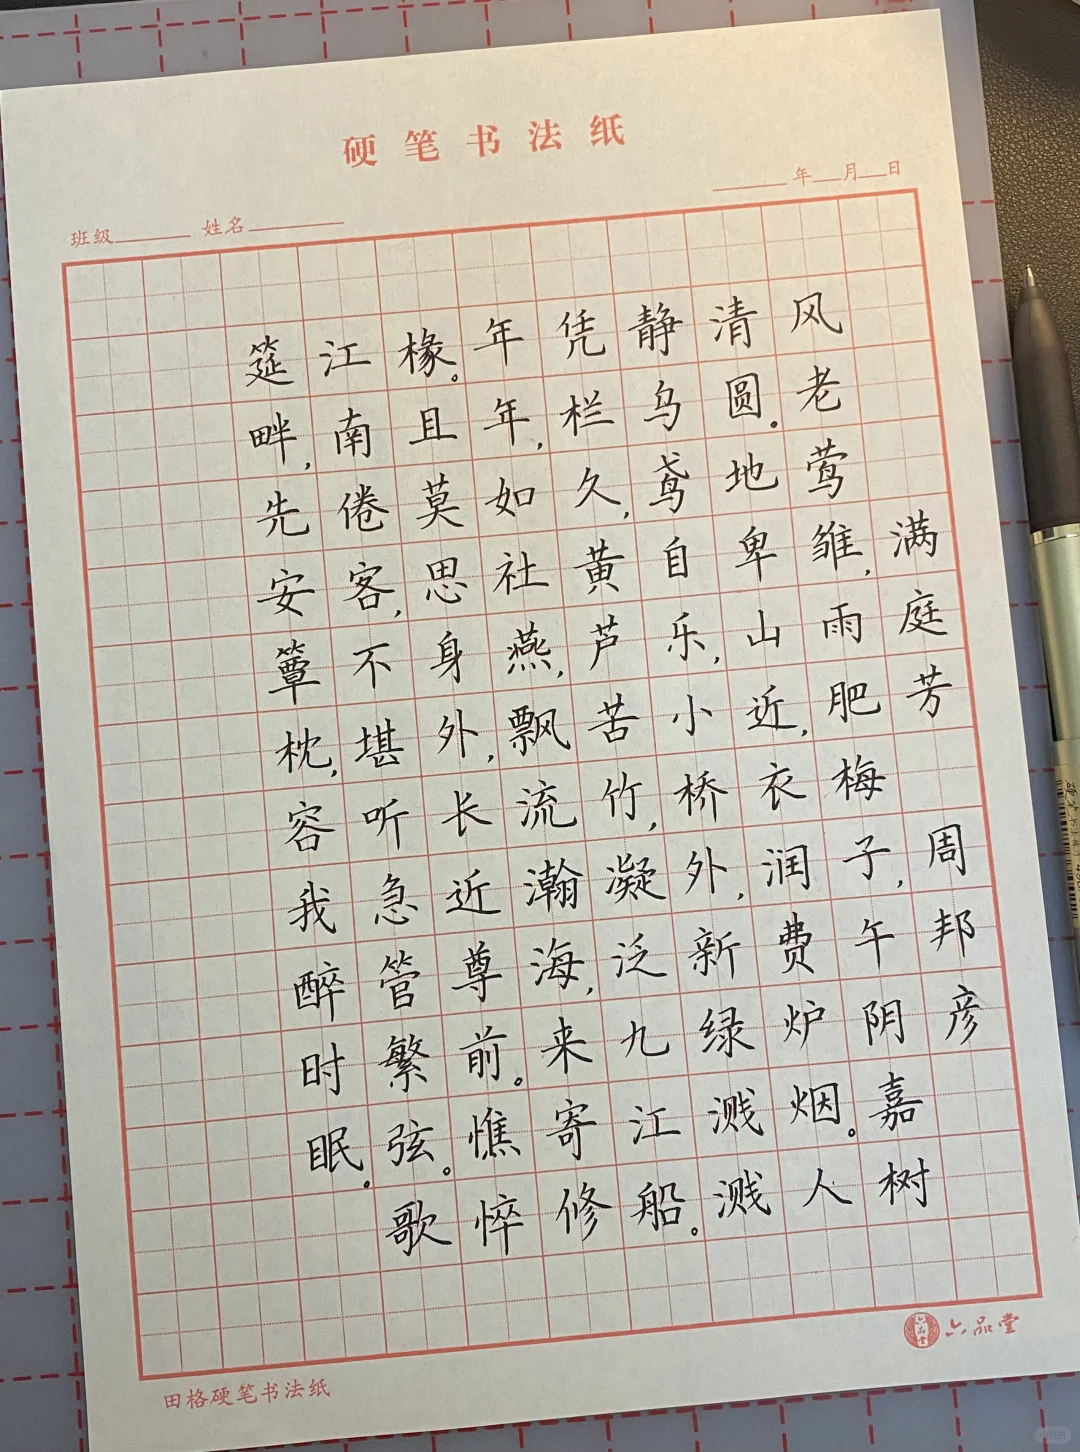 硬笔书法纸
班级 姓名 年 月 日
满庭芳 周邦彦
风老莺雏,雨肥梅子,午阴嘉树
清圆。地卑山近,衣润费炉烟。人
静乌鸢自乐,小桥外,新绿溅溅
凭栏久,黄芦苦竹,凝泛九江船。
年年,如社燕,飘流瀚海,来寄修
椽。且莫思身外,长近尊前。憔悴
江南倦客,不堪听急管繁弦。歌
筵畔,先安簟枕,容我醉时眠。
田格硬笔书法纸
六品堂